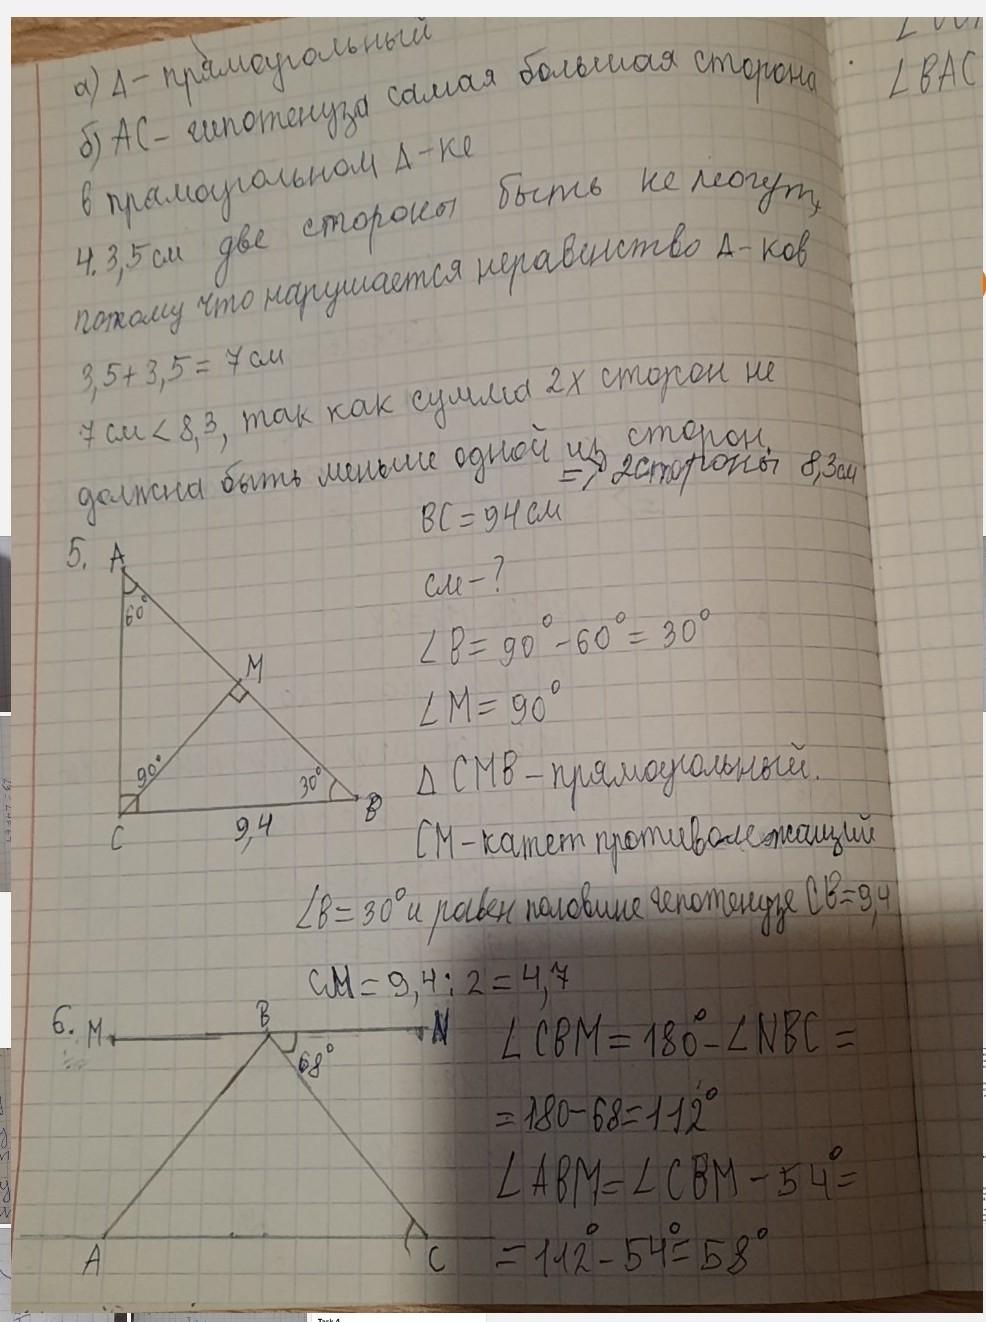 а) Δ - прямоугольный
б) АС - гипотенуза самая большая сторона
в прямоугольном Δ-ке
4. 3,5 см две стороны быть не могут,
потому что нарушается неравенство Δ-ков
3,5+3,5=7 см
7 см < 8,3, так как сумма 2х сторон не
должна быть меньше одной из сторон.
=> 2 стороны 8,3 см
5. A
60°
M
90°
30°
C
B
9,4
BC = 94 см
см - ?
∠B = 90° - 60° = 30°
∠M = 90°
Δ CMB - прямоугольный.
CM - катет противолежащий
∠B = 30° и равен половине гепотенузе CB = 9,4
CM = 9,4 : 2 = 4,7
6. M
B
N
68°
A
C
∠CBM = 180° - ∠NBC =
= 180 - 68 = 112°
∠ABM = ∠CBM - 54° =
= 112° - 54° = 58°
∠BAC